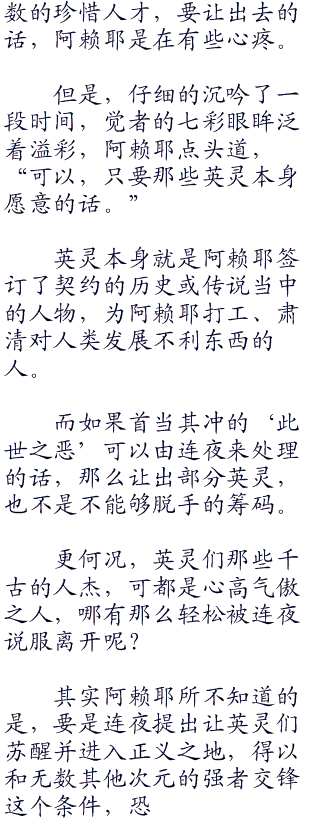 数的珍惜人才，要让出去的
话，阿赖耶是在有些心疼。
但是，仔细的沉吟了一
段时间，觉者的七彩眼眸泛
着溢彩，阿赖耶点头道，
“可以，只要那些英灵本身
愿意的话。”
英灵本身就是阿赖耶签
订了契约的历史或传说当中
的人物，为阿赖耶打工、肃
清对人类发展不利东西的
人。
而如果首当其冲的‘此
世之恶’可以由连夜来处理
的话，那么让出部分英灵，
也不是不能够脱手的筹码。
更何况，英灵们那些千
古的人杰，可都是心高气傲
之人，哪有那么轻松被连夜
说服离开呢？
其实阿赖耶所不知道的
是，要是连夜提出让英灵们
苏醒并进入正义之地，得以
和无数其他次元的强者交锋
这个条件，恐